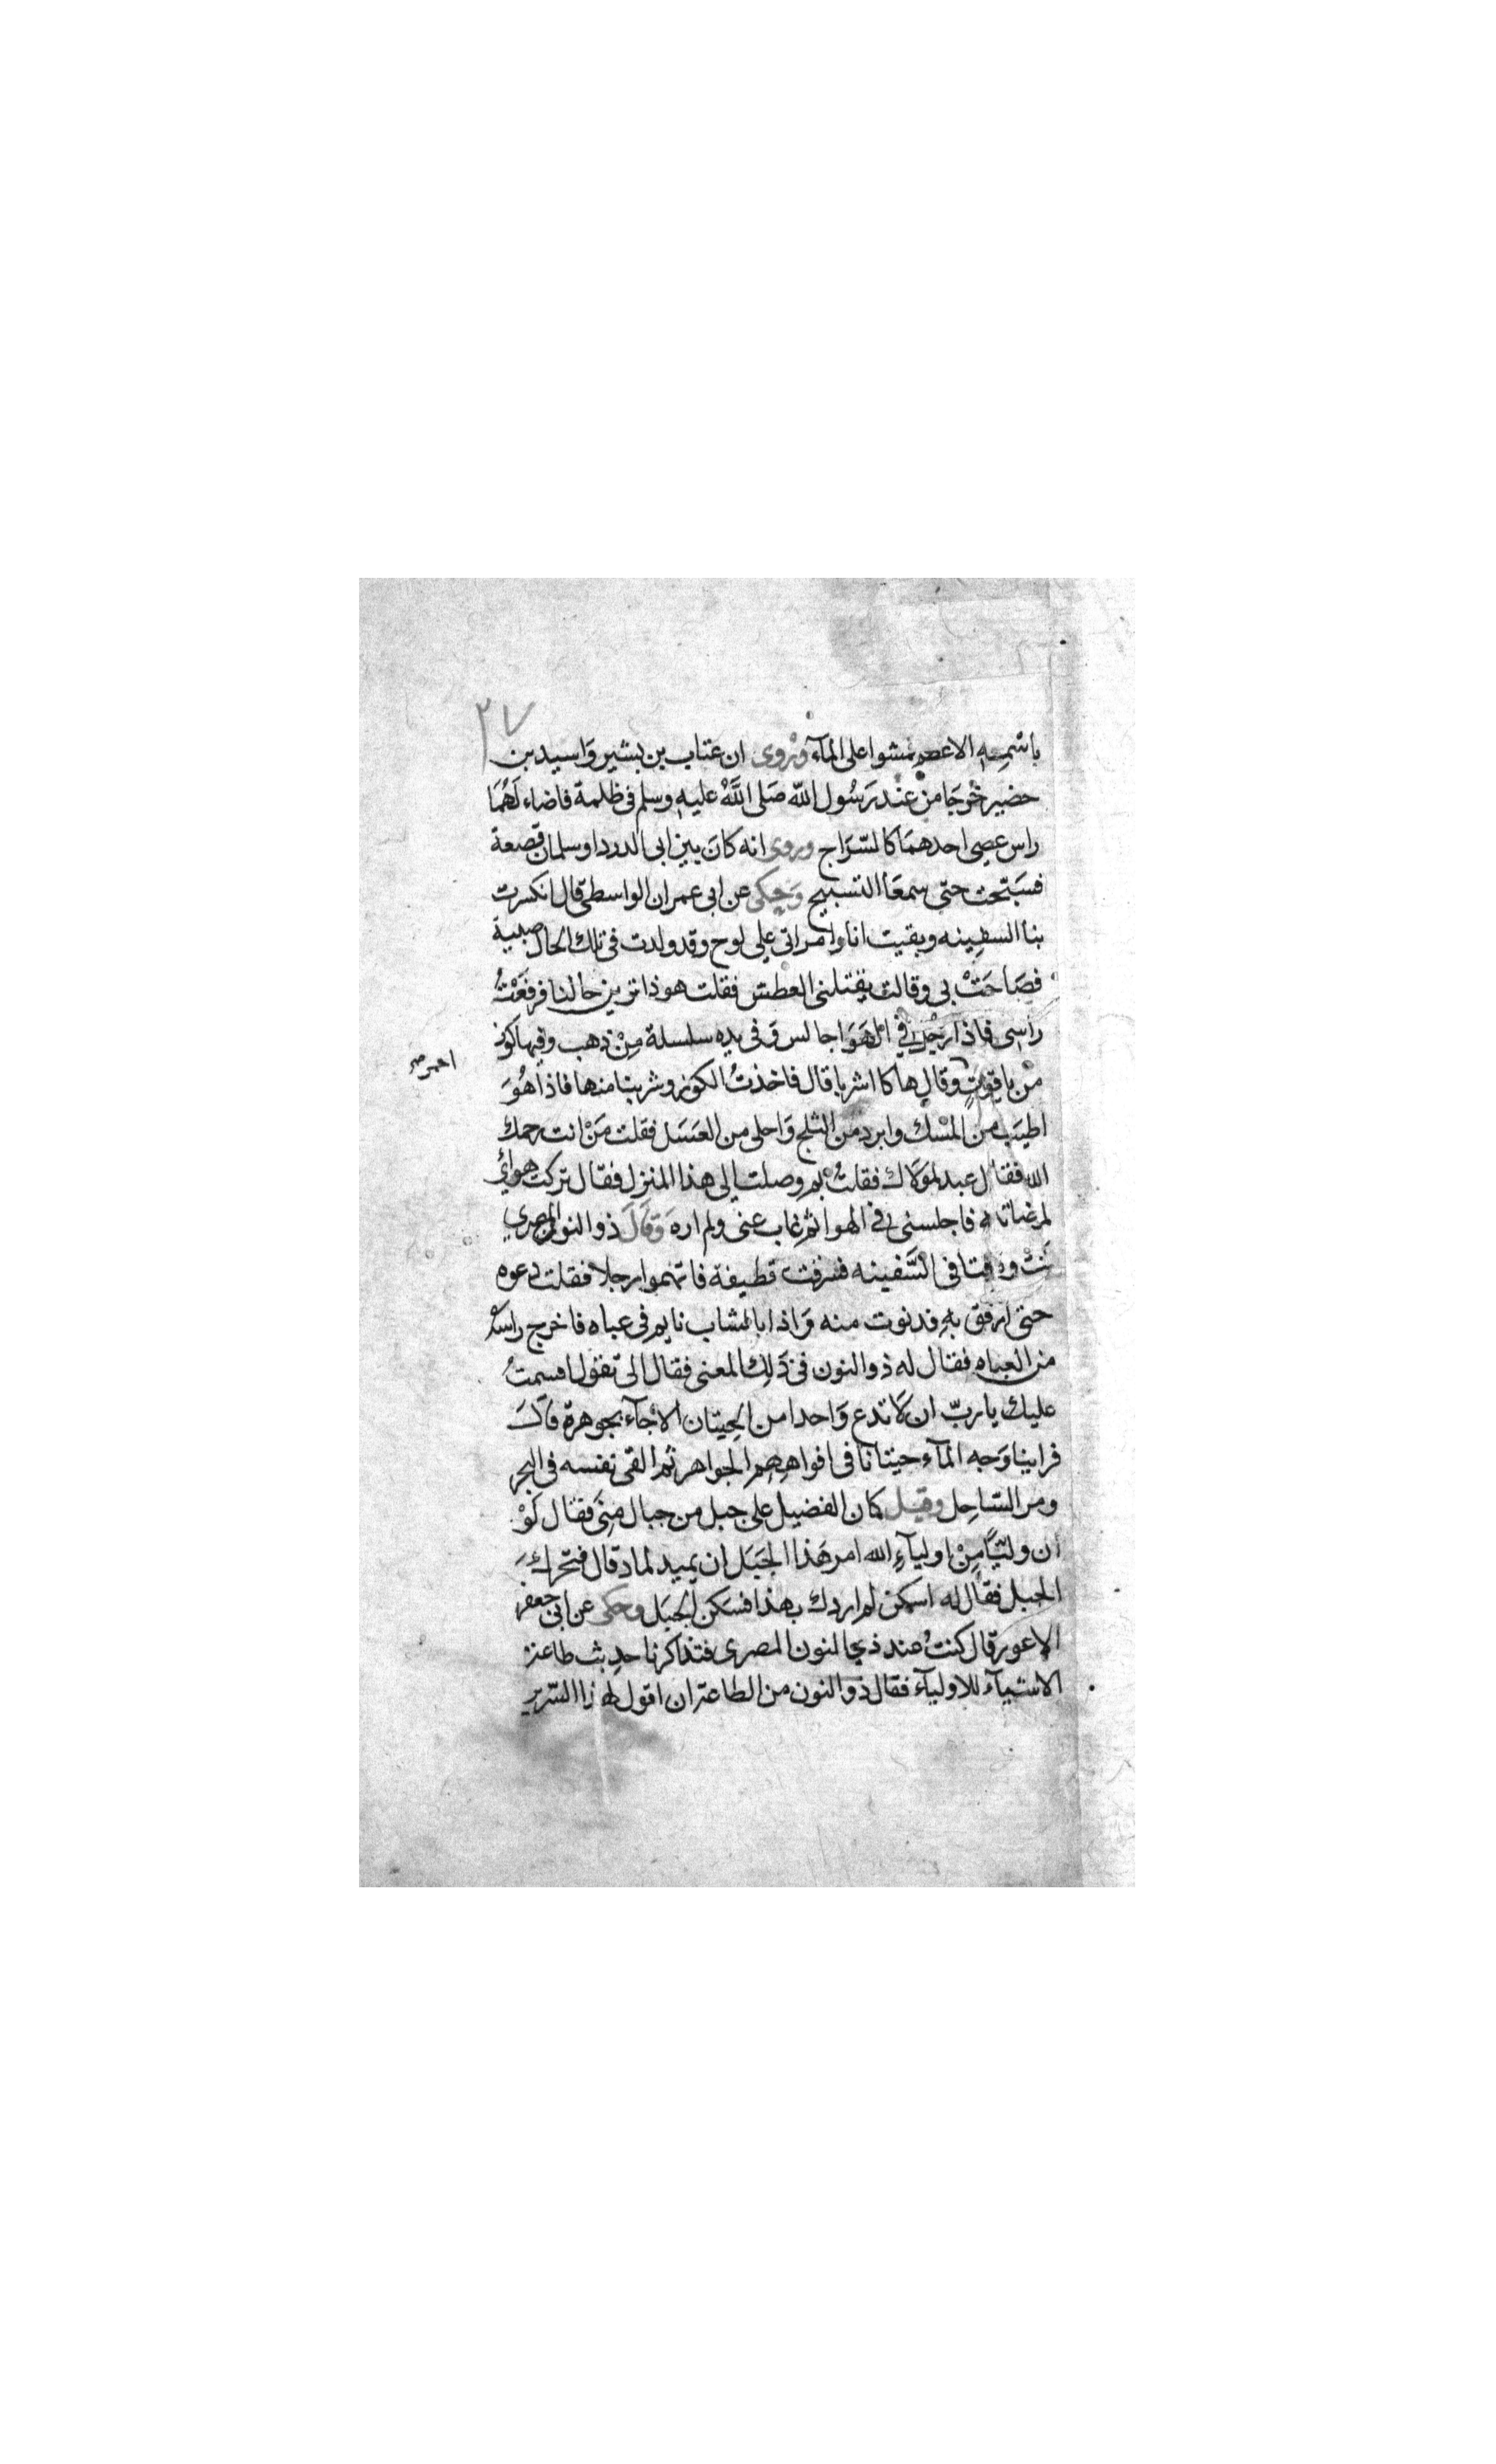 ٢٧
باسْمِهِ الاعظم مشوا على المآء وَرُوى ان عتاب بن بشير وَاسيد بن
حضير خرَجَا من عند رَسُول اللّه صَلى اللَّهُ عليهِ وسلم فى ظلمة فاضاء لَهُمَا
راس عصى احدهمَا كالسّرَاج وروى انه كانَ بين ابى الدردا وسلمان قصعة
فسَبّحت حتى سمعَا التسبيح وَحِكى عن ابى عمران الواسطى قال انكسرت
بنا السفِينه وبقيت انا وامراتى على لوح وقد ولدت فى تلك الحال صبية
فصَاحَتْ بى وقالت يقتلنى العطش فقلت هو ذا ترين حالنا فرفعَتُْ
رَاسى فاذا رجُل فى الهَوَا جالس وَ فى يده سلسلة مِنْ ذهب وفيها كوز
احمر صح
منْ ياقوتٍ وقال هاكا اشربا قال فاخذتُ الكوز وشربنا منها فاذا هُوَ
اطيَب من المسْك وابرد من الثلج وَاحلى من العَسَل فقلت مَنْ انت رحمك
اللّه فقال عبد لموَلاك فقلتُ بم وصلت الى هذا المنزل فقال تركت هوائ
لمرضاته فاجلسنى فى الهوا ثم غاب عنى ولم اره وَقالَ ذو النون المصرى
كنت وقتا فى السَّفينه فسرقت قطيفة فاتهموا رجلا فقلت دعوه
حتى ارفق بهِ فدنوت منه وَاذا بالشاب نايم فى عباه فاخرج راسَهُ
من العباه فقال له ذو النون فى ذَلِك المعنى فقال الى تقول اقسمتُ
عليك يا ربّ ان لَا تدع وَاحدا من الحِيتان الا جآء بجوهرة قالَ
فراينا وَجه المآء حيتانا فى افواهِهِم الجواهر ثم القى نفسه فى البحر
ومر السّاحِل وقيل كان الفضيل على جبل من جبال مِنَى فقال لَوْ
أن وليّاً مِنْ اوليآءِ اللّه امر هَذا الجَبَل ان يميد لماد قال فتحركَ
الجبل فقال له اسكن لم اردك بهذا فسَكن الجَبَل وحكى عن ابى جعفر
الاعور قال كنتُ عند ذى النون المصرى فتذاكرنا حديث طاعة
الاشيآء للاوليآء فقال ذو النون من الطاعة ان اقول لهذا السّرير